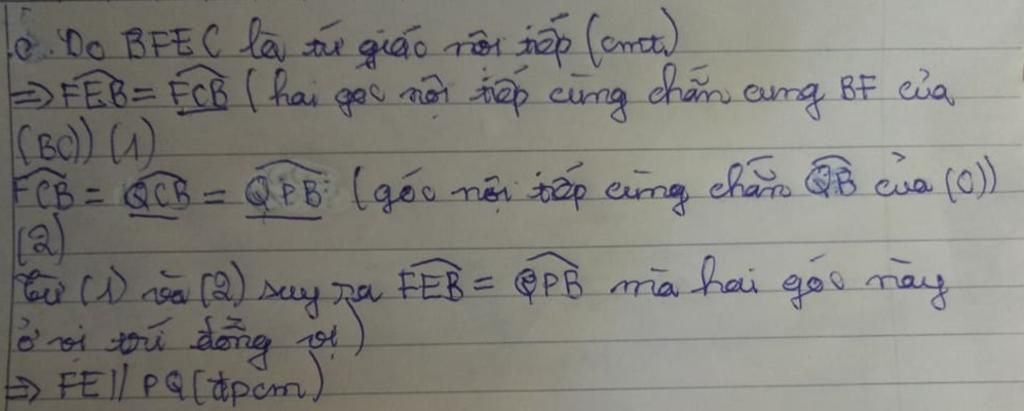 c. Do BFEC là tứ giác nội tiếp (cmt)
=> FEB = FCB (hai góc nội tiếp cùng chắn cung BF của
(BC)) (1)
FCB = QCB = QPB (góc nội tiếp cùng chắn QB của (O))
(2)
Từ (1) và (2) suy ra FEB = QPB mà hai góc này
ở vị trí đồng vị)
=> FE // PQ (đpcm)